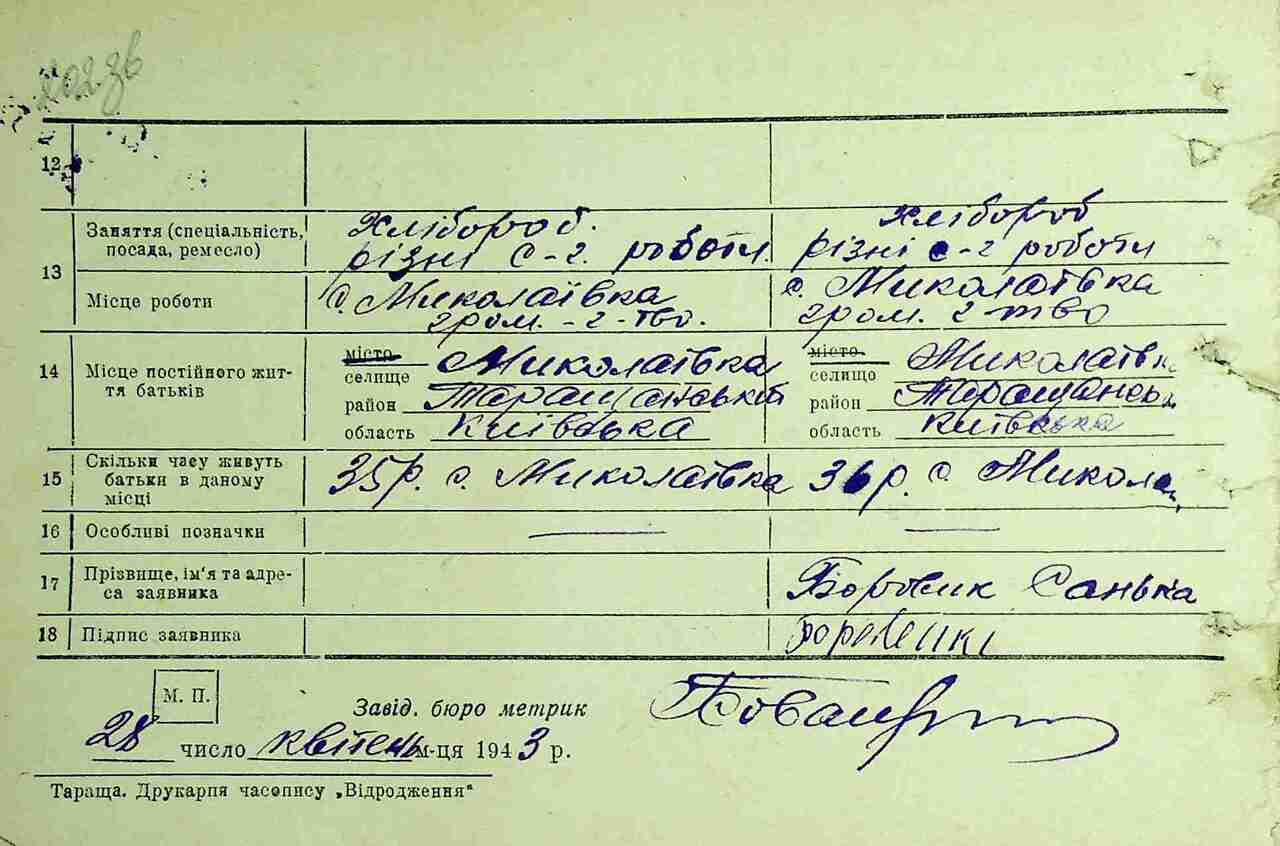 202 зв
12
13
Заняття (спеціальність, посада, ремесло)
Хлібороб. різні с-г. роботи.
Хлібороб різні с-г роботи
Місце роботи
с. Миколаївка гром. -г-тво.
с. Миколаївка гром. г-тво
14
Місце постійного життя батьків
місто
селище Миколаївка
район Таращанський
область Київська
місто
селище Миколаївк
район Таращанськ
область Київська
15
Скільки часу живуть батьки в даному місці
35 р. с. Миколаївка
36 р. с. Микола
16 Особливі позначки
17
Прізвище, ім'я та адреса заявника
Боровик Санька
18 Підпис заявника
М. П.
Завід. бюро метрик
28 число квітень м-ця 1943 р.
Тараща. Друкарня часопису „Відродження“